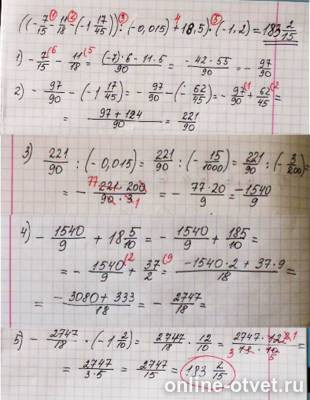 ((-7/15 - 11/18 - (-1 17/45)) : (-0,015) + 18,5) · (-1,2) = 183 2/15
1) -7/15 - 11/18 = ((-7)·6 - 11·5)/90 = (-42-55)/90 = -97/90
2) -97/90 - (-1 17/45) = -97/90 - (-62/45) = -97/90 + 62/45 =
= (97+124)/90 = 221/90
3) 221/90 : (-0,015) = 221/90 : (-15/1000) = 221/90 : (-3/200) =
= -(221·200)/(90·3) = -(77·20)/9 = -1540/9
4) -1540/9 + 18 5/10 = -1540/9 + 185/10 =
= -1540/9 + 37/2 = (-1540·2 + 37·9)/18 =
= (-3080+333)/18 = -2747/18
5) -2747/18 · (-1 2/10) = 2747/18 · 12/10 = (2747·12)/(18·10) =
= 2747/(3·5) = 2747/15 = 183 2/15
online-otvet.ru